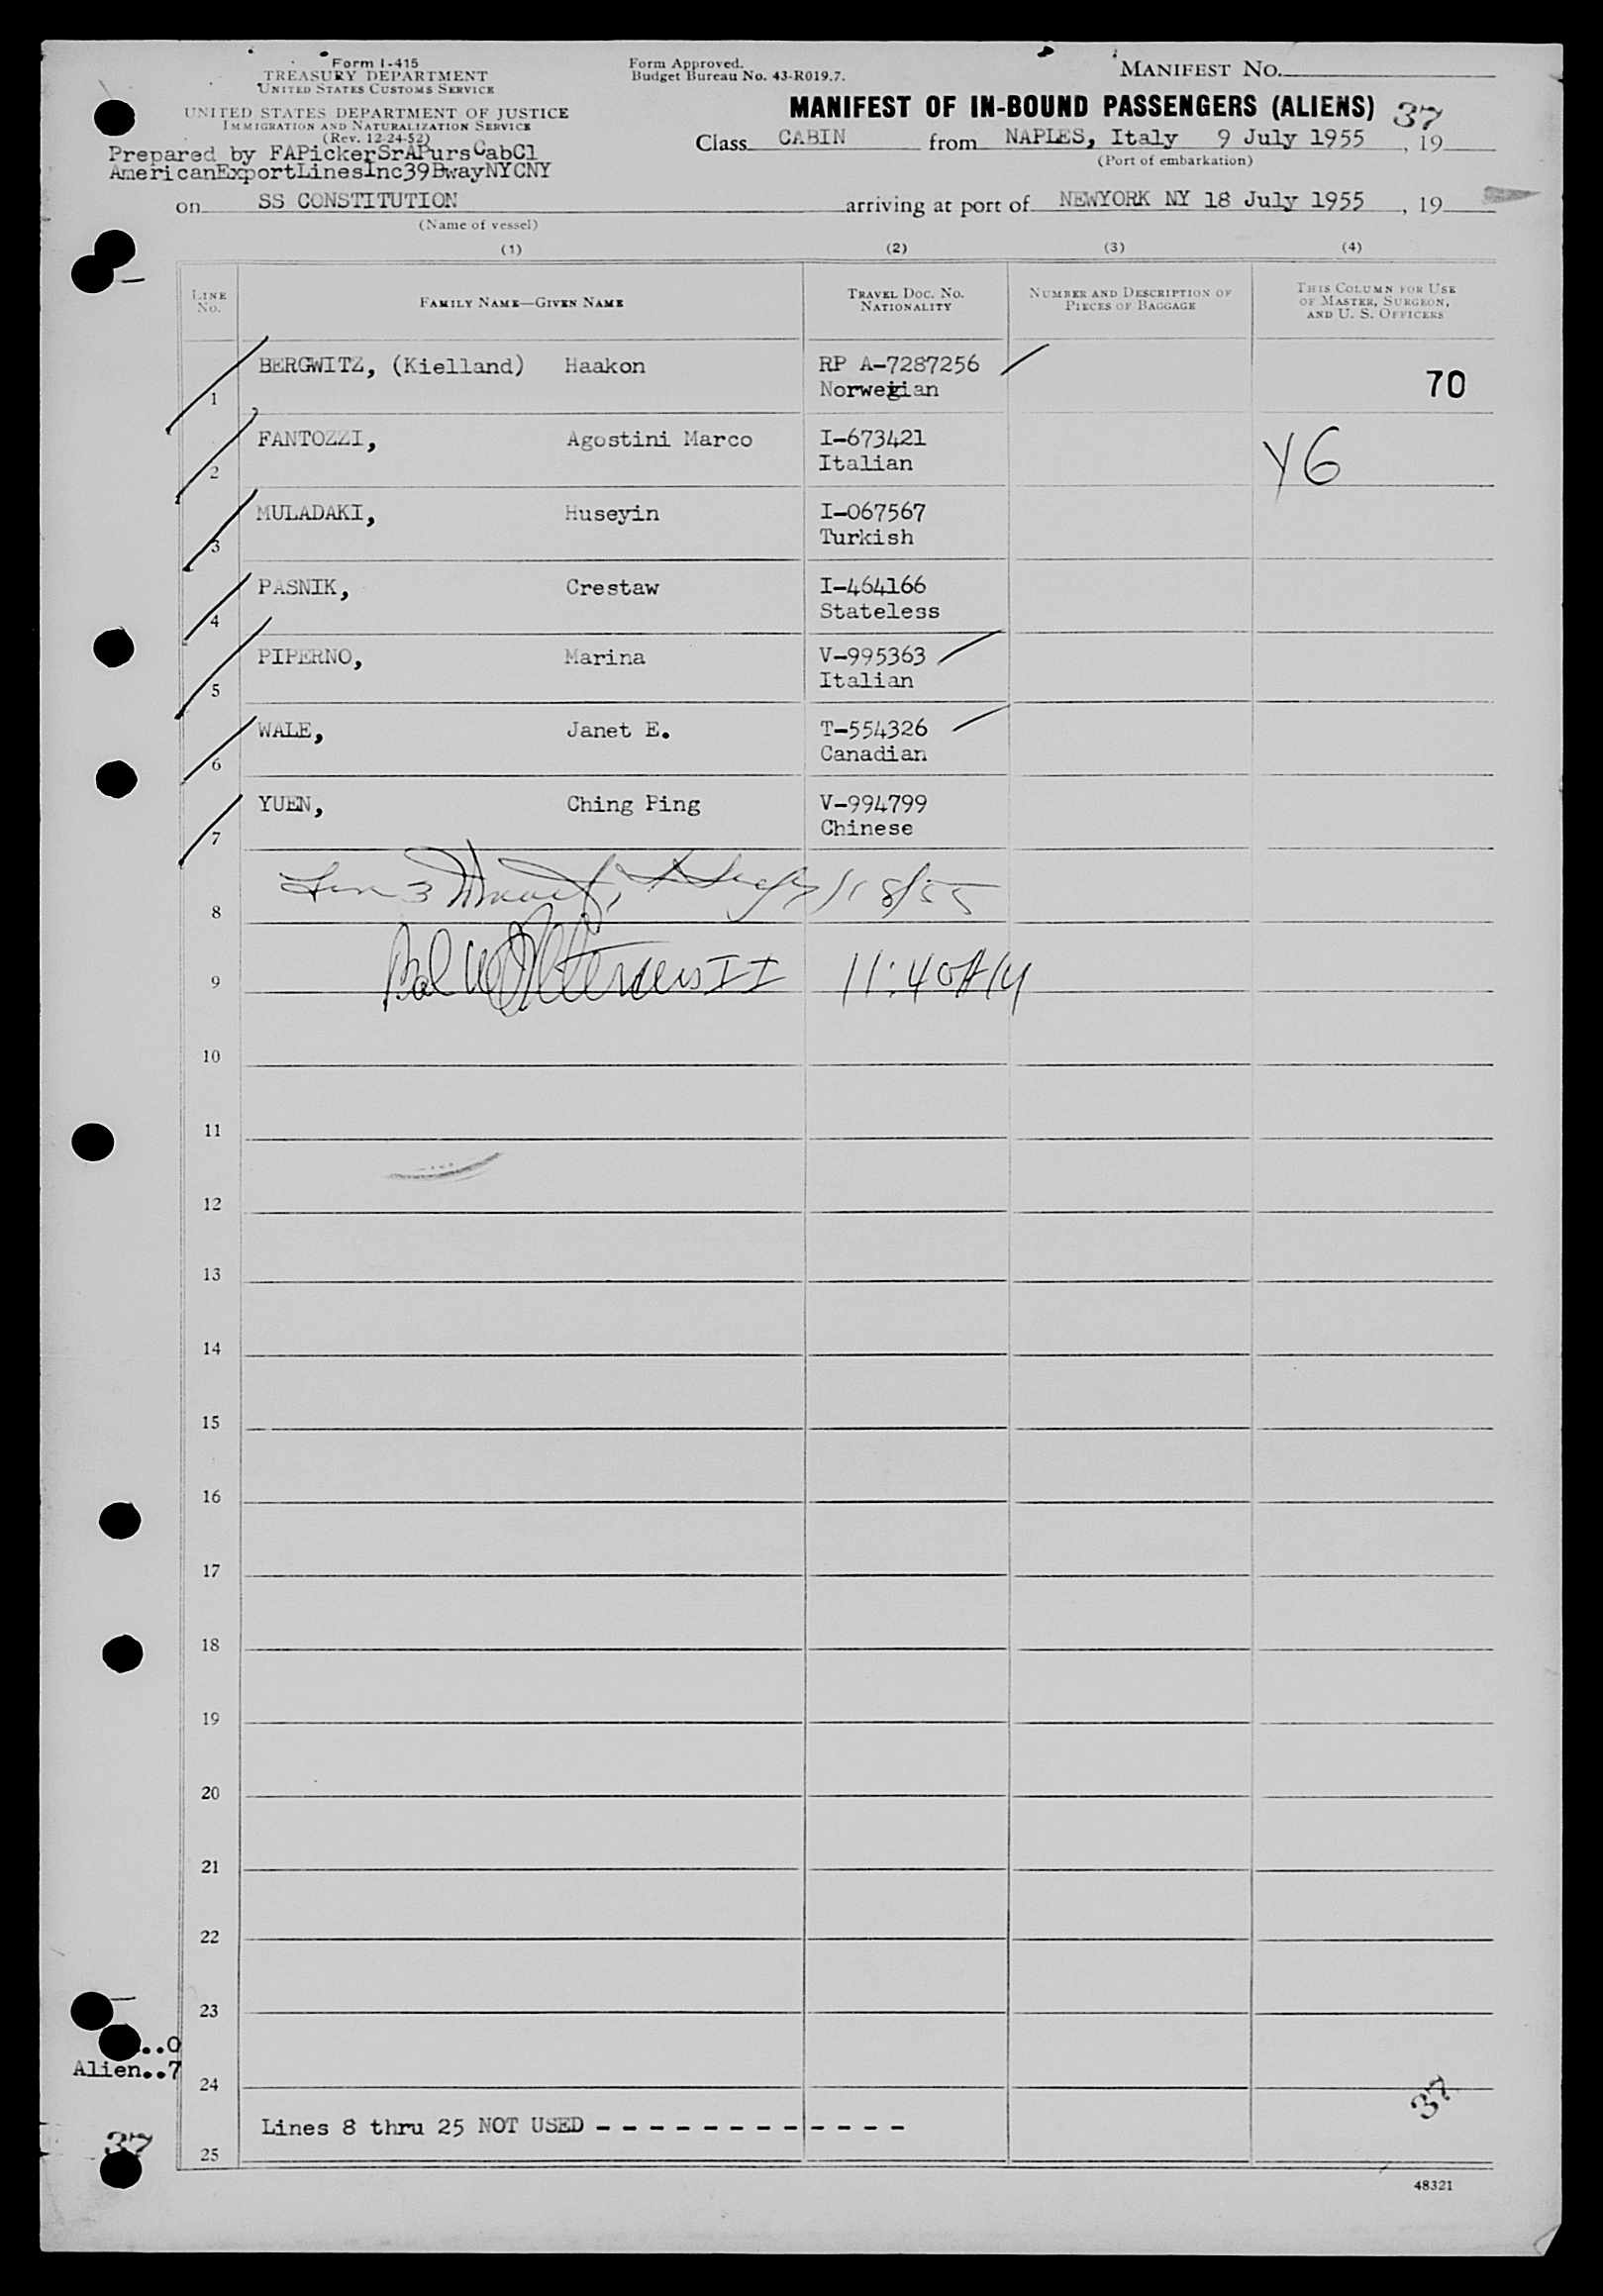 Form I-415
TREASURY DEPARTMENT
UNITED STATES CUSTOMS SERVICE
UNITED STATES DEPARTMENT OF JUSTICE
IMMIGRATION AND NATURALIZATION SERVICE
(Rev. 12-24-52)
Prepared by FAPickerSrAPursCabCl
AmericanExportLinesInc39BwayNYCNY
Form Approved.
Budget Bureau No. 43-R019.7.
MANIFEST NO.
MANIFEST OF IN-BOUND PASSENGERS (ALIENS) 37
Class CABIN from NAPLES, Italy 9 July 1955, 19
(Port of embarkation)
on SS CONSTITUTION arriving at port of NEWYORK NY 18 July 1955, 19
(Name of vessel)
(1) (2) (3) (4)
LINE NO.
FAMILY NAME—GIVEN NAME
TRAVEL DOC. NO.
NATIONALITY
NUMBER AND DESCRIPTION OF
PIECES OF BAGGAGE
THIS COLUMN FOR USE
OF MASTER, SURGEON,
AND U. S. OFFICERS
1 BERGWITZ, (Kielland) Haakon RP A-7287256
Norwegian 70
2 FANTOZZI, Agostini Marco I-673421
Italian Y6
3 MULADAKI, Huseyin I-067567
Turkish
4 PASNIK, Crestaw I-464166
Stateless
5 PIPERNO, Marina V-995363
Italian
6 WALE, Janet E. T-554326
Canadian
7 YUEN, Ching Ping V-994799
Chinese
8
9 II 11:40AM
10
11
12
13
14
15
16
17
18
19
20
21
22
23
..0
Alien..7
24
37
Lines 8 thru 25 NOT USED - - - - - - - - - - - -
37
25
48321